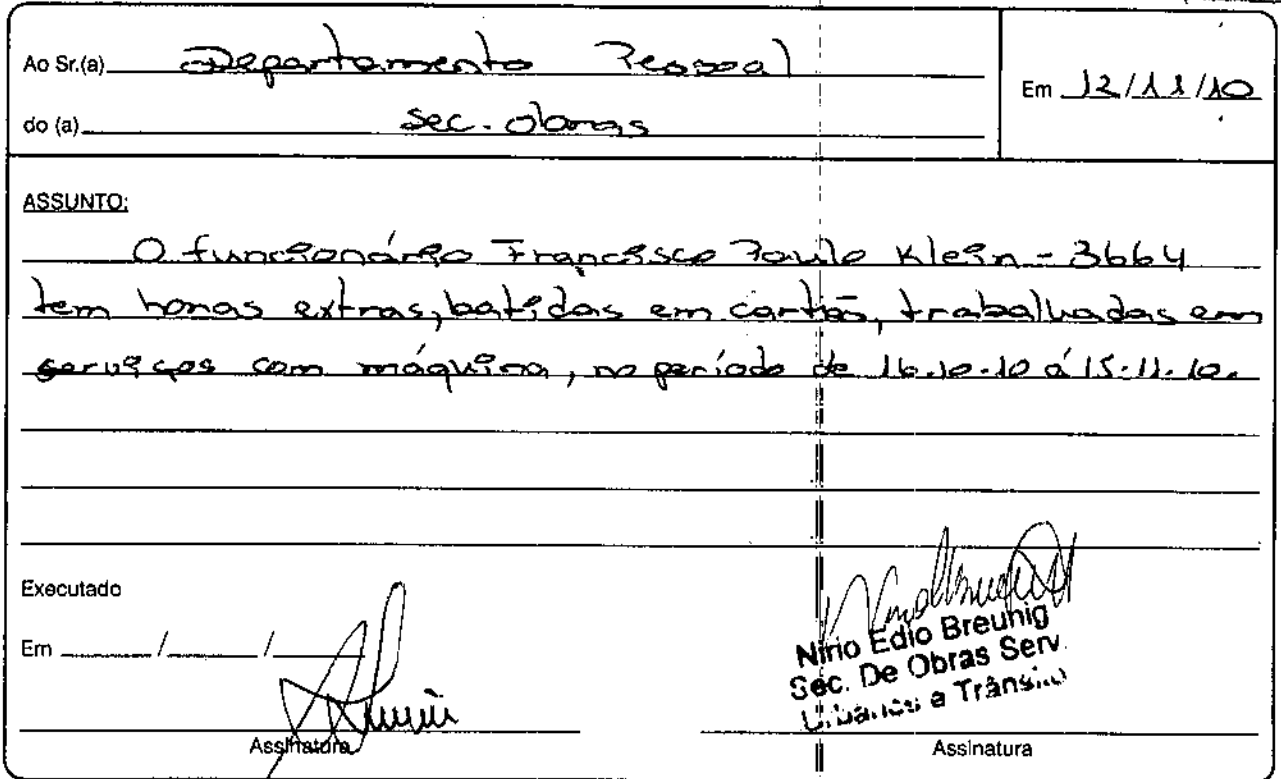 Ao Sr.(a) Departamento Pessoal
Em 12/11/10
do (a) Sec. obras
ASSUNTO:
O funcionário Francisco Paulo Klein - 3664
tem horas extras, batidas em cartão, trabalhadas em
serviços com máquina, no período de 16.10.10 á 15.11.10.
Executado
Em ____/____/____
Nirio Edio Breunig
Sec. De Obras Serv.
Urbanos e Trânsito
Assinatura
Assinatura